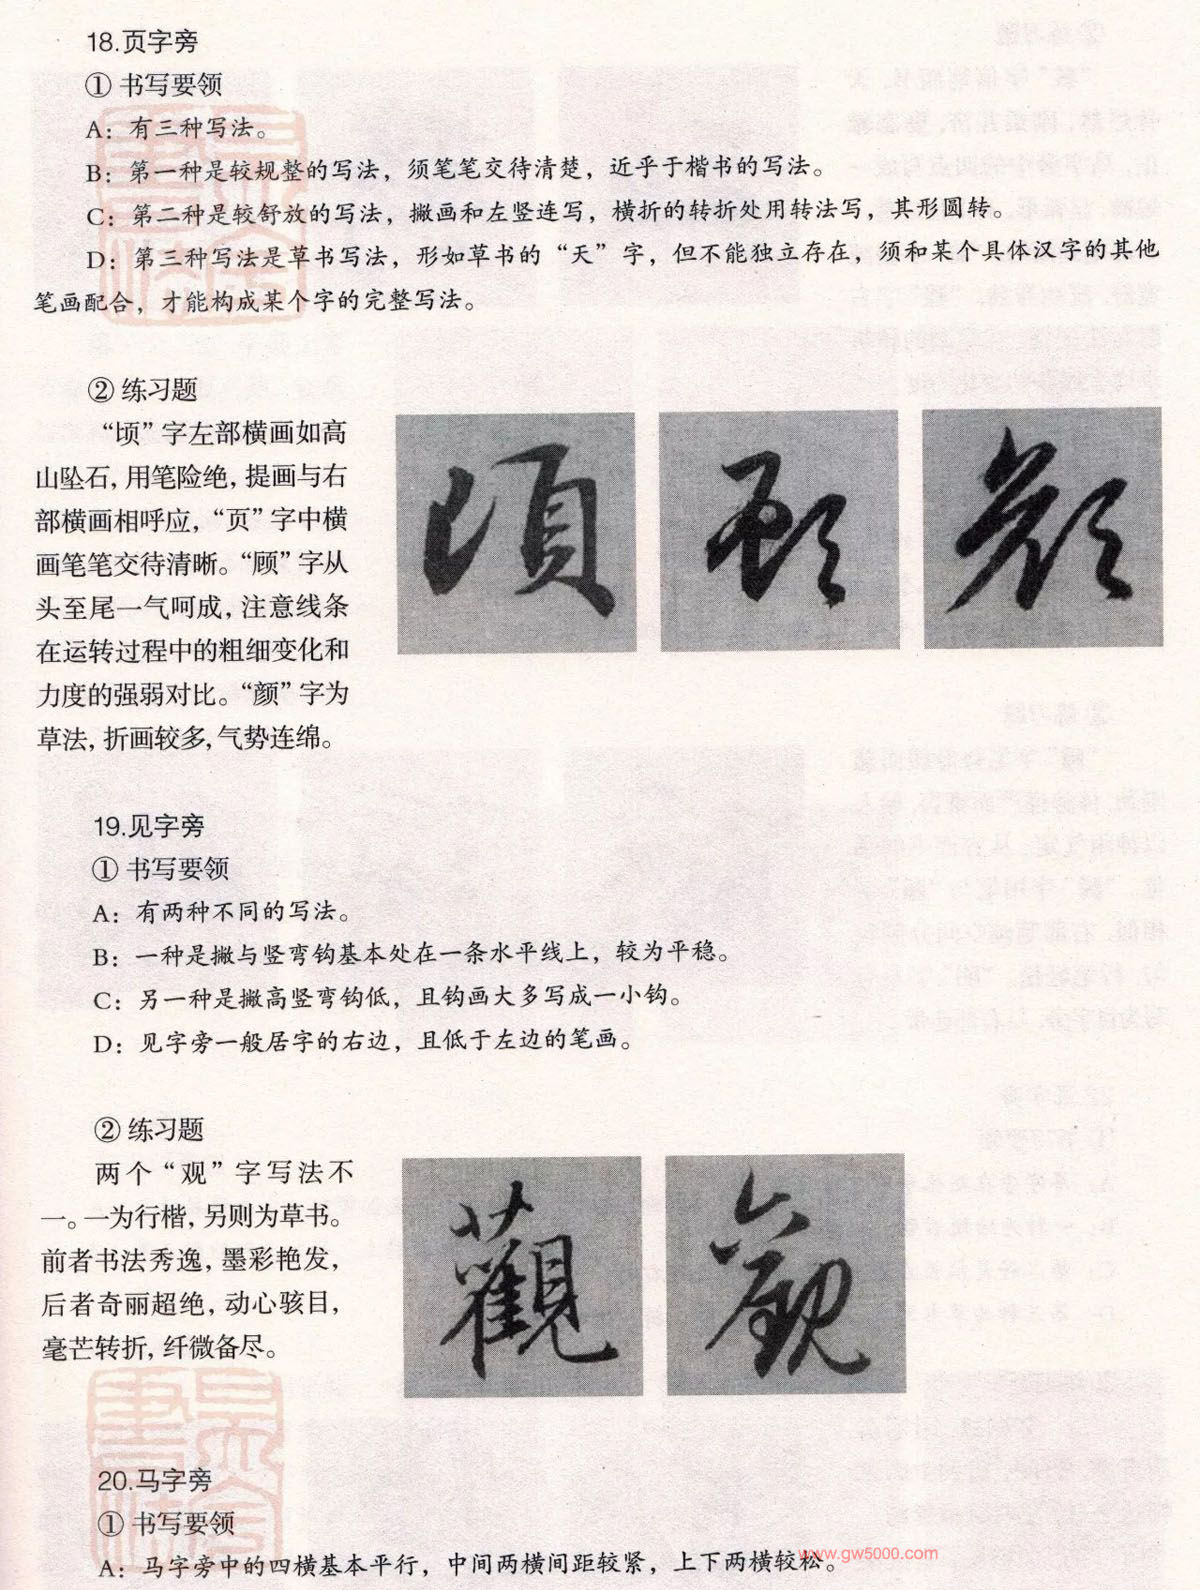 18.页字旁
① 书写要领
A：有三种写法。
B：第一种是较规整的写法，须笔笔交待清楚，近乎于楷书的写法。
C：第二种是较舒放的写法，撇画和左竖连写，横折的转折处用转法写，其形圆转。
D：第三种写法是草书写法，形如草书的“天”字，但不能独立存在，须和某个具体汉字的其他
笔画配合，才能构成某个字的完整写法。
② 练习题
“顷”字左部横画如高
山坠石，用笔险绝，提画与右
部横画相呼应，“页”字中横
画笔笔交待清晰。“顾”字从
头至尾一气呵成，注意线条
在运转过程中的粗细变化和
力度的强弱对比。“颜”字为
草法，折画较多，气势连绵。
頃 顧 顔
19.见字旁
① 书写要领
A：有两种不同的写法。
B：一种是撇与竖弯钩基本处在一条水平线上，较为平稳。
C：另一种是撇高竖弯钩低，且钩画大多写成一小钩。
D：见字旁一般居字的右边，且低于左边的笔画。
② 练习题
两个“观”字写法不
一。一为行楷，另则为草书。
前者书法秀逸，墨彩艳发，
后者奇丽超绝，动心骇目，
毫芒转折，纤微备尽。
觀 觀
20.马字旁
① 书写要领
A：马字旁中的四横基本平行，中间两横间距较紧，上下两横较松。
www.gw5000.com